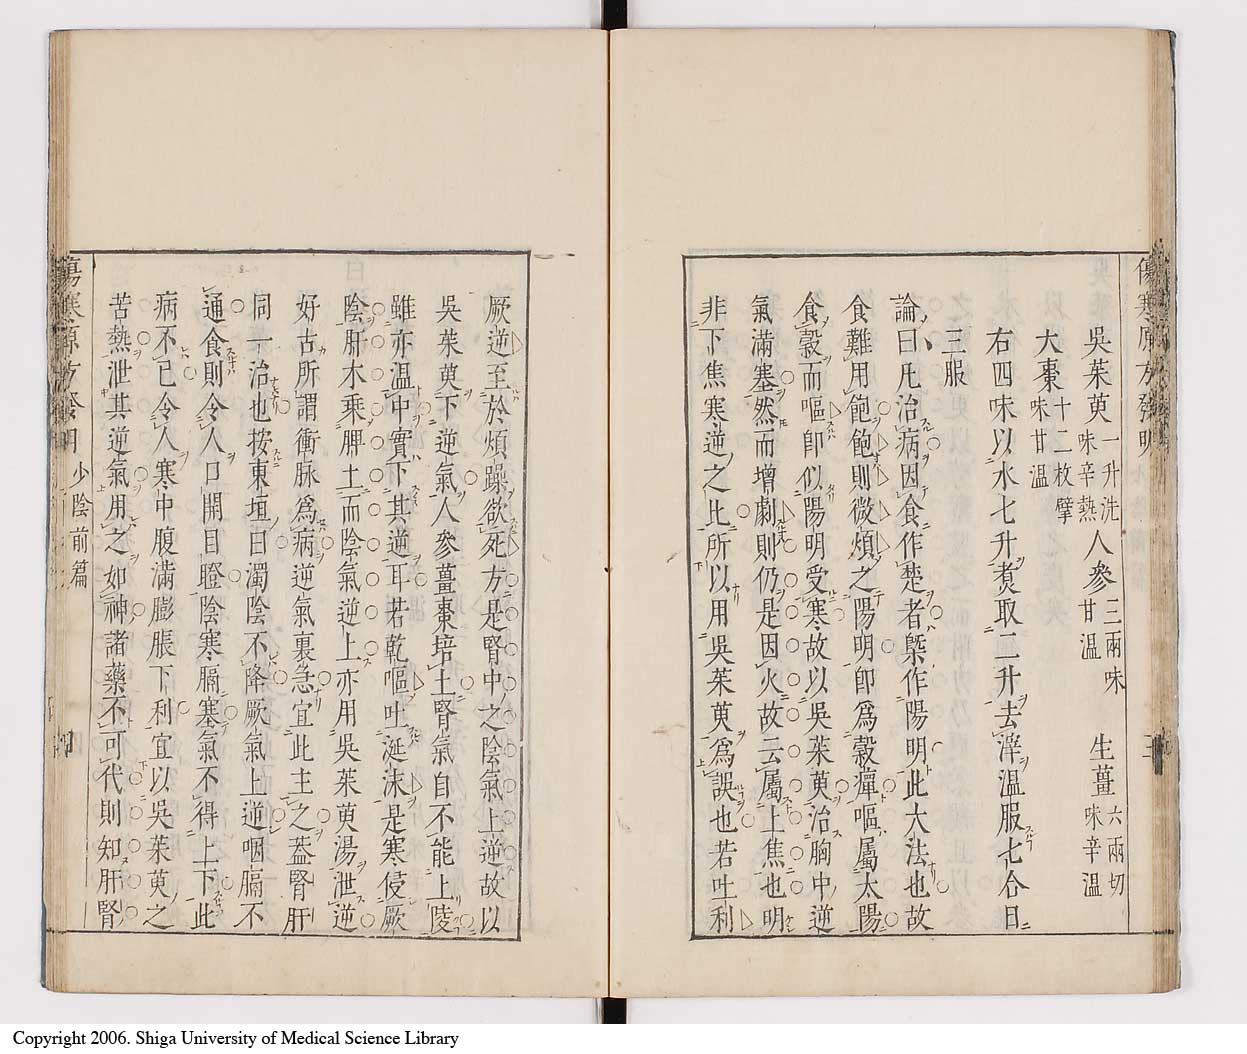 傷寒原方發明
吳茱萸一升洗味辛熱人參三兩味甘溫生薑六兩切味辛溫
大棗十二枚擘味甘溫
右四味以水七升煑取二升去滓溫服七合日
三服
論曰凡治病因食作楚者槩作陽明此大法也故
食難用飽飽則微煩之陽明卽爲穀癉嘔屬太陽
食穀而嘔卽似陽明受寒故以吳茱萸治胸中逆
氣滿塞然而增劇則仍是因火故云屬上焦也明
非下焦寒逆之比所以用吳茱萸爲誤也若吐利
厥逆至於煩躁欲死方是腎中之陰氣上逆故以
吳茱萸下逆氣人參薑棗培土腎氣自不能上陵
雖亦溫中實下其逆耳若乾嘔吐涎沫是寒侵厥
陰肝木乘脾土而陰氣逆上亦用吳茱萸湯泄逆
好古所謂衝脉爲病逆氣裏急宜此主之葢腎肝
同一治也按東垣曰濁陰不降厥氣上逆咽膈不
通食則令人口開目瞪陰寒膈塞氣不得上下此
病不已令人寒中腹滿膨脹下利宜以吳茱萸之
苦熱泄其逆氣用之如神諸藥不可代則知肝腎
傷寒原方發明 少陰前篇
Copyright 2006. Shiga University of Medical Science Library